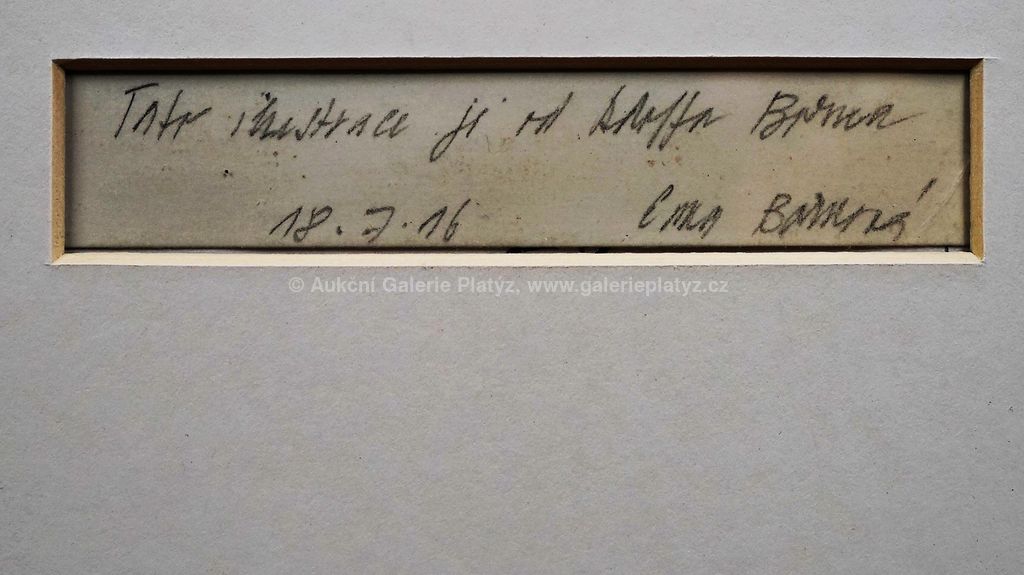 Tato ilustrace je od Adolfa Borna
18.7.16 Ema Bornová
© Aukcní Galerie Platýz, www.galerieplatyz.cz